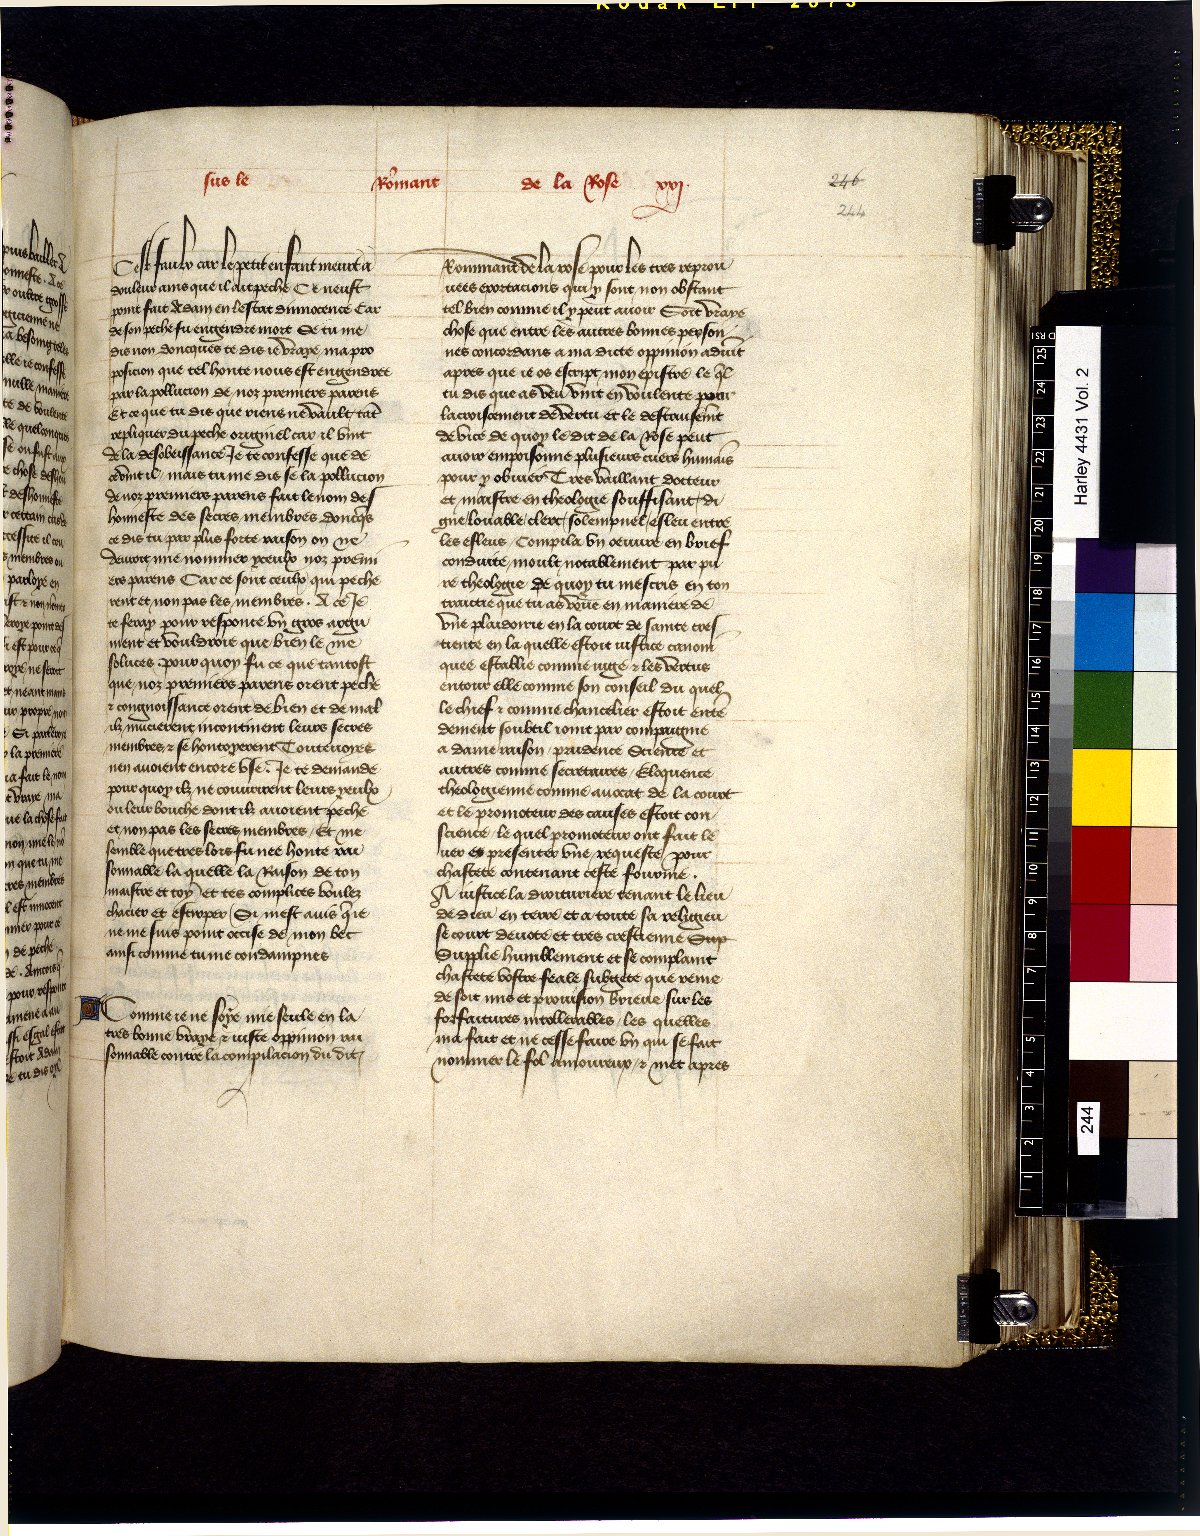 Kodak
sus le Romant de la Rose xxj.
246
244
C est faulx car le petit enfant meurt a
douleur ains que il ait peché Ce neust
point fait Adam en lestat dinnocence Car
de son peché fu engendre mort Se tu me
dis non doncques te dis ie vraye ma pro
posicion que tel honte nous est engendree
par la pollucion de noz premiers parens
Et ce que tu dis que riens ne vault tāt
repliquer du peche originel car il vint
de la desobeissance Je te confesse que de
la vint il mais tu me dis se la pollucion
de noz premiers parens fait le nom des
honneste des secres membres doncq̄s
ce dis tu par plus forte raison on ne
devroit mie nommer yceulx noz premi
ers parens Car ce sont ceulx qui peche
rent et non pas les membres . A ce Je
te feray pour responce vn gros argu
ment et vouldroie que bien le me
soluces pour quoy fu ce que tantost
que noz premiers parens orent peche
⁊ congnoissance orent de bien et de mal
ilz mucierent incontinent leurs secres
membres ⁊ se hontoyerent Toutevoies
nen auoient encore vse . Je te demande
pour quoy ilz ne couurirent leurs yeulx
ou leur bouche dont ilz auoient peche
et non pas les secres membres Et me
semble que tres lors fu nee honte rai
sonnable la quelle la Raison de ton
maistre et toy et tes complices voulez
chacier et estirper Si mest auis q̄ ie
ne me suis point occise de mon bec
ainsi comme tu me condampnes
Comme ie ne soye mie seule en la
tres bonne vraye ⁊ iuste oppinion rai
sonnable contre la compilacion du dit
Rommant de la rose pour les tres reprou
uees exortacions qui y sont non obstant
tel bien comme il y peut auoir Soit vraye
chose que entre les autres bonnes person
nes concordans a ma dicte oppinion aduīt
apres que ie os escript mon epistre le q̄l
tu dis que as veu vint en voulente pour
lacroiscement de vertu et le destruisemēt
de vice de quoy le dit de la Rose peut
auoir empoisonne plusieurs cuers humais
pour y obuier Tres vaillant docteur
et maistre en theologie souffisant di
gne louable clerc solempnel esleu entre
les esleus Compila vn oeuure en brief
conduite moult notablement par pu
re theologie de quoy tu mescris en ton
traictie que tu as veue en maniere de
vne plaidoirie en la court de sainte cres
tiente en la quelle estoit iustice canoni
quee establie comme iuge ⁊ les vertus
entour elle comme son conseil du quel
le chief ⁊ comme chancelier estoit entē
dement soubtil ioint par compaignie
a dame raison prudence Science et
autres comme secretaires Eloquence
theologienne comme auocat de la court
et le promoteur des causes estoit con
science le quel promoteur ont fait le
uer et presenter vne requeste pour
chastete contenant ceste fourme .
A iustice la droituriere tenant le lieu
de dieu en terre et a toute sa religieu
se court deuote et tres crestienne Sup
Supplie humblement et se complaint
chastete vostre feale subgete que reme
de soit mis et prouision brieue sur les
forfaitures intollerables les quelles
ma fait et ne cesse faire vn qui se fait
nommer le fol amoureux ⁊ met apres
Harley 4431 Vol. 2
25
24
23
22
21
20
19
18
17
16
15
14
13
12
11
10
9
8
7
5
4
3
2
1
244